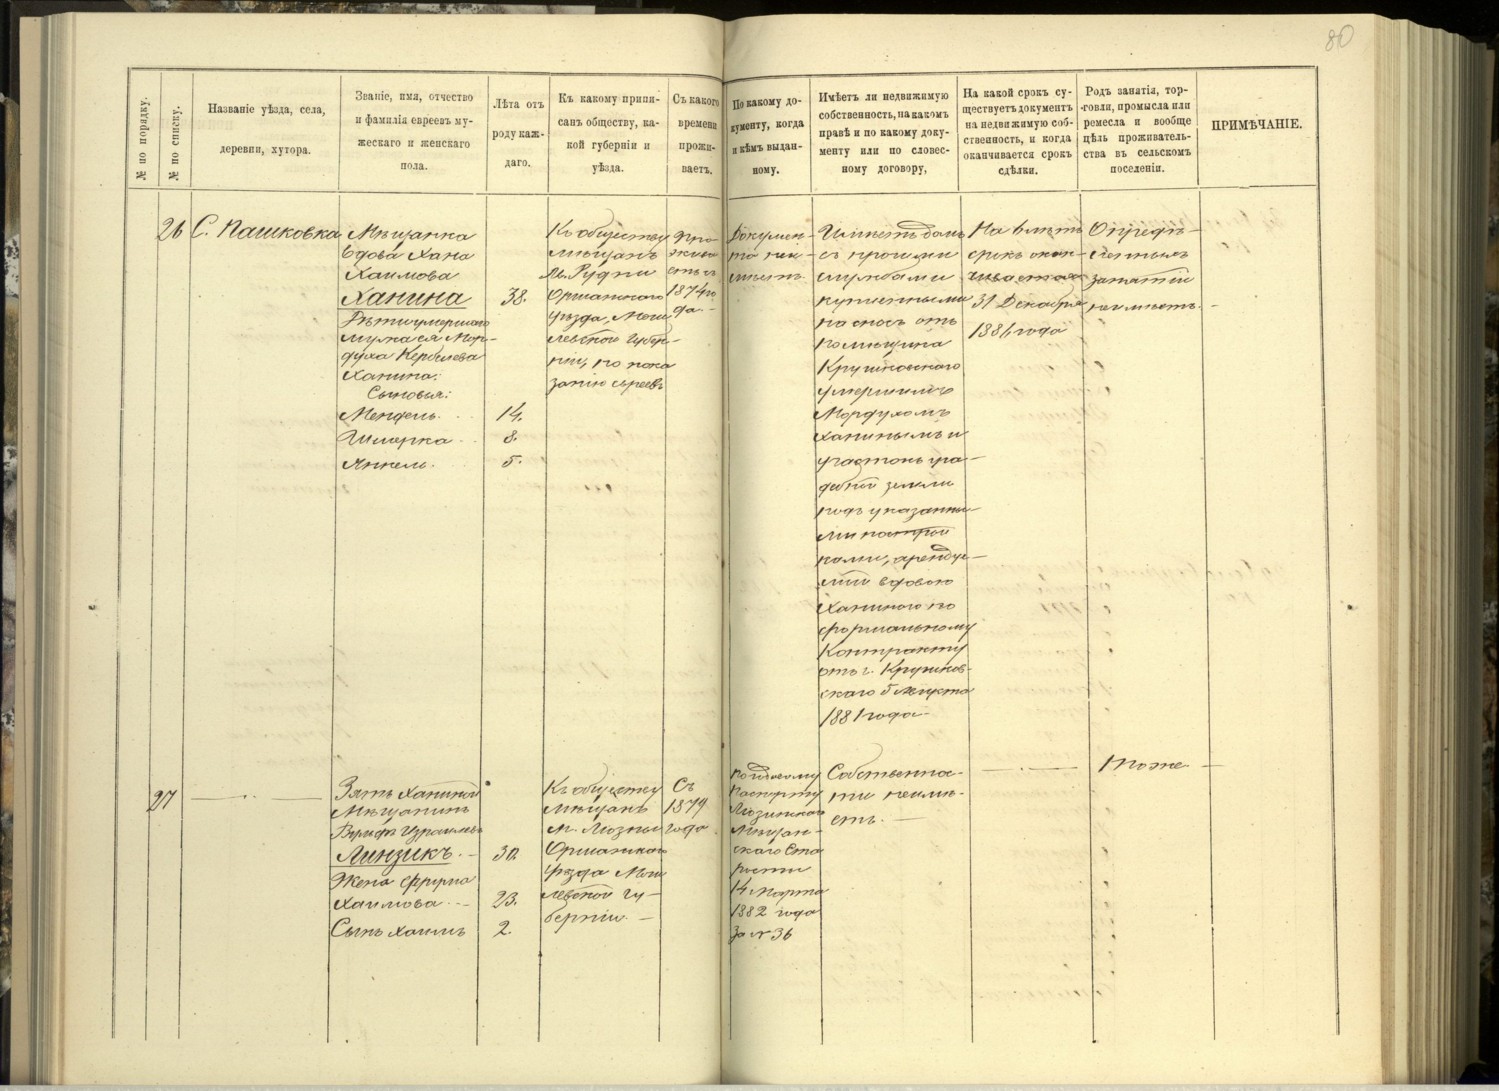 80
№ по порядку.
№ по списку.
Названіе уѣзда, села,
деревни, хутора.
Званіе, имя, отчество
и фамилія евреевъ му-
жескаго и женскаго
пола.
Лѣта отъ
роду каж-
даго.
Къ какому припи-
санъ обществу, ка-
кой губерніи и
уѣзда.
Съ какого
времени
прожи-
ваетъ.
По какому до-
кументу, когда
и кѣмъ выдан-
ному.
Имѣетъ ли недвижимую
собственность, на какомъ
правѣ и по какому доку-
менту или по словес-
ному договору,
На какой срокъ су-
ществуетъ документъ
на недвижимую соб-
ственность, и когда
оканчивается срокъ
сдѣлки.
Родъ занятія, тор-
говли, промысла или
ремесла и вообще
цѣль проживатель-
ства въ сельскомъ
поселеніи.
ПРИМѢЧАНІЕ.
26
С. Пашковка
Мѣщанка
вдова Хана
Хаимова
Ханина
Дѣти умершаго
мужа ея Мор-
духа
Ханина:
Сыновья:
Мендель
Шмерка
Янкель
38.
14.
8.
5.
Къ обществу
мѣщанъ
м. Рудни
Оршанскаго
уѣзда, Моги
левской губер-
ніи, по пока
занію евреевъ
Про
жива
етъ съ
1874 го
да.
Докумен-
та не и-
мѣетъ.
Имѣетъ домъ
съ прочими
службами
купленными
на сносъ отъ
помѣщика
Крушевскаго
умершимъ
Мордухомъ
Ханинымъ и
участокъ уса-
дебной земли
подъ указанны
ми построй
ками, арендуе-
мой вдовою
Ханиною по
формальному
контракту
отъ г. Крушев-
скаго 5 Августа
1881 года
На 6 лѣтъ
срокъ окан-
чивается
31 Декабря
188 года
Опредѣ-
леннымъ
занятій
не имѣетъ.
27
Зять Ханиной
Мѣщанинъ
Израилевъ
Линзикъ
Жена Фрума
Хаимова
Сынъ Хаимъ
30.
23.
2.
Къ обществу
мѣщанъ
м. Лозны
Оршанскаго
уѣзда Моги
левской гу-
берніи.
Съ
1879
года.
По годовому
паспорту
Лозинскаго
мѣщан-
скаго Ста
росты
14 Марта
1882 года
за № 36
Собственнос-
ти не имѣ-
етъ.
тоже